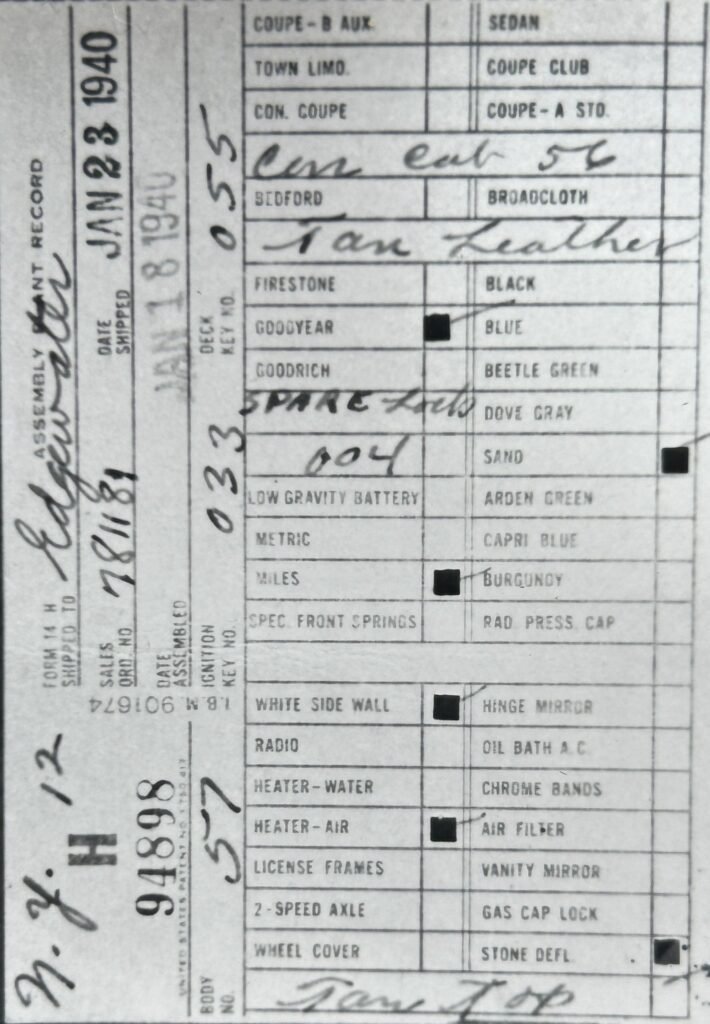 FORM 14 H ASSEMBLY PLANT RECORD
SHIPPED TO Edgwater
SALES ORD. NO 781181 DATE SHIPPED JAN 23 1940
DATE ASSEMBLED JAN 18 1940
IGNITION KEY NO. 033 DECK KEY NO. 055
I.B.M 901674
N.Y. 12
H
94898
UNITED STATES PATENT NO.
BODY NO. 57
COUPE-B AUX. SEDAN
TOWN LIMO. COUPE CLUB
CON. COUPE COUPE-A STD.
Con Cab 56
BEDFORD BROADCLOTH
Tan Leather
FIRESTONE BLACK
GOODYEAR BLUE
GOODRICH BEETLE GREEN
SPARE Lock DOVE GRAY
004 SAND
LOW GRAVITY BATTERY ARDEN GREEN
METRIC CAPRI BLUE
MILES BURGUNDY
SPEC. FRONT SPRINGS RAD. PRESS. CAP
WHITE SIDE WALL HINGE MIRROR
RADIO OIL BATH A.C.
HEATER-WATER CHROME BANDS
HEATER-AIR AIR FILTER
LICENSE FRAMES VANITY MIRROR
2-SPEED AXLE GAS CAP LOCK
WHEEL COVER STONE DEFL.
Tan Top